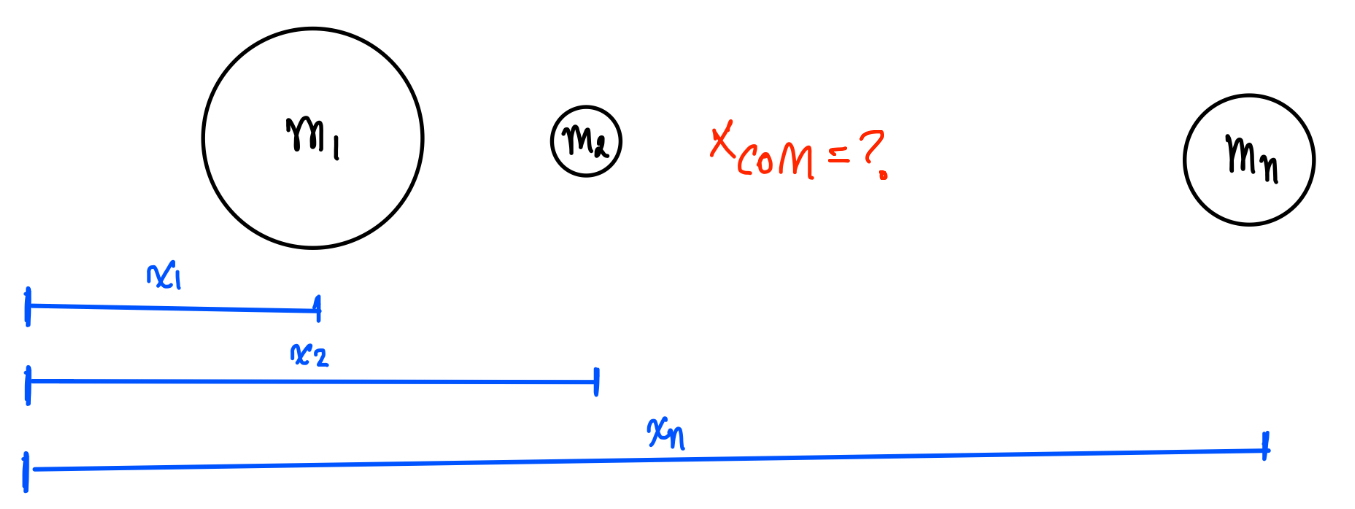 m₁ m₂ x_COM = ? mₙ
x₁
x₂
xₙ